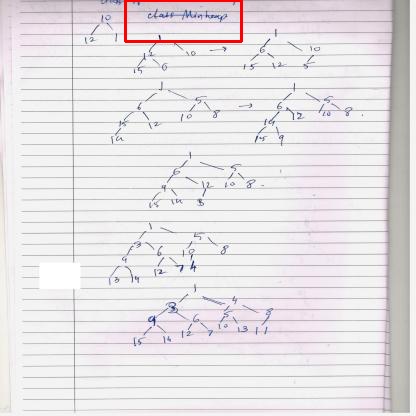 class Minheap
10
12 1
1
12 10
15 6
1
6 10
15 12 5
1
6 5
15 12 10 8
14
1
6 5
14 12 10 8
15 9
1
6 5
9 12 10 8
15 14 3
1
3 5
9 6 10 8
13 14 12 7 4
1
3 4
9 6 5 8
15 14 12 7 10 13 11